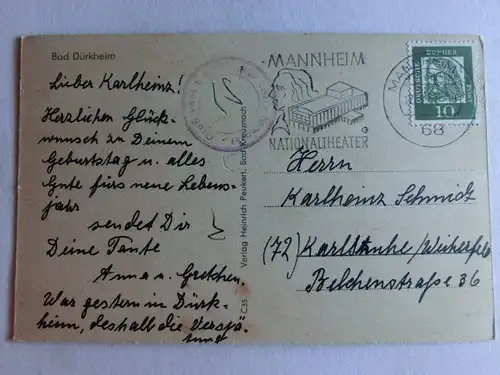 Bad Dürkheim
Lieber Karlheinz!
Herzlichen Glück-
wunsch zu Deinem
Geburtstag u. alles
Gute fürs neue Lebens-
jahr
sendet Dir
Deine Tante
Anna u. Gretchen.
War gestern in Dürk-
heim, deshalb die Verspä-
tung
C35
Verlag Heinrich Peukert, Bad Kreuznach
MANNHEIM
NATIONALTHEATER
68
DEUTSCHE
BUNDESPOST
10
Herrn
Karlheinz Schmidt
(72) Karlsruhe/Weiherfeld
Belchenstraße 36